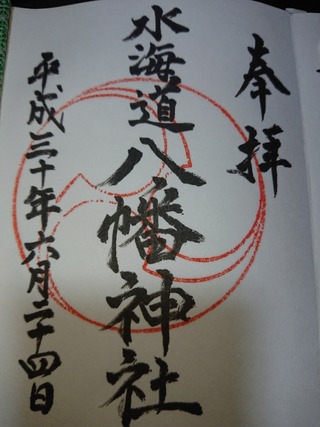 奉拝
水海道八幡神社
平成三十年六月二十四日